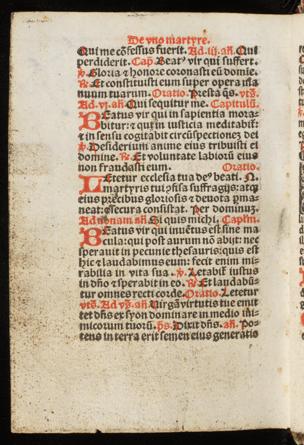 De vno martyre.
Qui me cōfessus fuerit. Ad.iii.añ. Qui
perdiderit. Capľ. Beat⁹ vir qui suffert.
℣. Gloria ⁊ honore coronasti eū domie.
℟. Et constituisti eum super opera ma
nuum tuarum. Oratio. Presta q̄s. vt ẜ.
Ad.vi.añ. Qui sequitur me. Capitulū.
BEatus vir qui in sapientia mora-
bitur: ⁊ qui in iusticia meditabiť:
⁊ in sensu cogitabit circūspectionez dei
℣. Desiderium anime eius tribuisti ei
domine. ℟. Et voluntate labiorū eius
non fraudasti eum. Oratio.
LEtetur ecclesia tua de⁹ beati. N.
martyris tui ꝯfisa suffragijs: atq̄
eius precibus gloriosis ⁊ deuota ꝑma
neat: ⁊ secura consistat. Per dominuz.
Ad nonam.añ. Si quis michi. Capľm.
BEatus vir qui inuētus est sine ma
cula: qui post aurum nō abijt: nec
sperauit in pecunie thesauris: quis est
hic ⁊ laudabimus eum: fecit enim mi-
rabilia in vita sua. ℣. Letabiť iustus
in dn̄o ⁊ sperabit in eo. ℟. Et laudabū-
tur omnes recti corde. Oratio. Letetur
vt ẜ. Ad vs̄.añ. Virgā virtutis tue emit
tet dn̄s ex syon dominare in medio ini-
micorum tuorū. ps̄. Dixit dn̄s. añ. Po-
tens in terra erit semen eius generatio